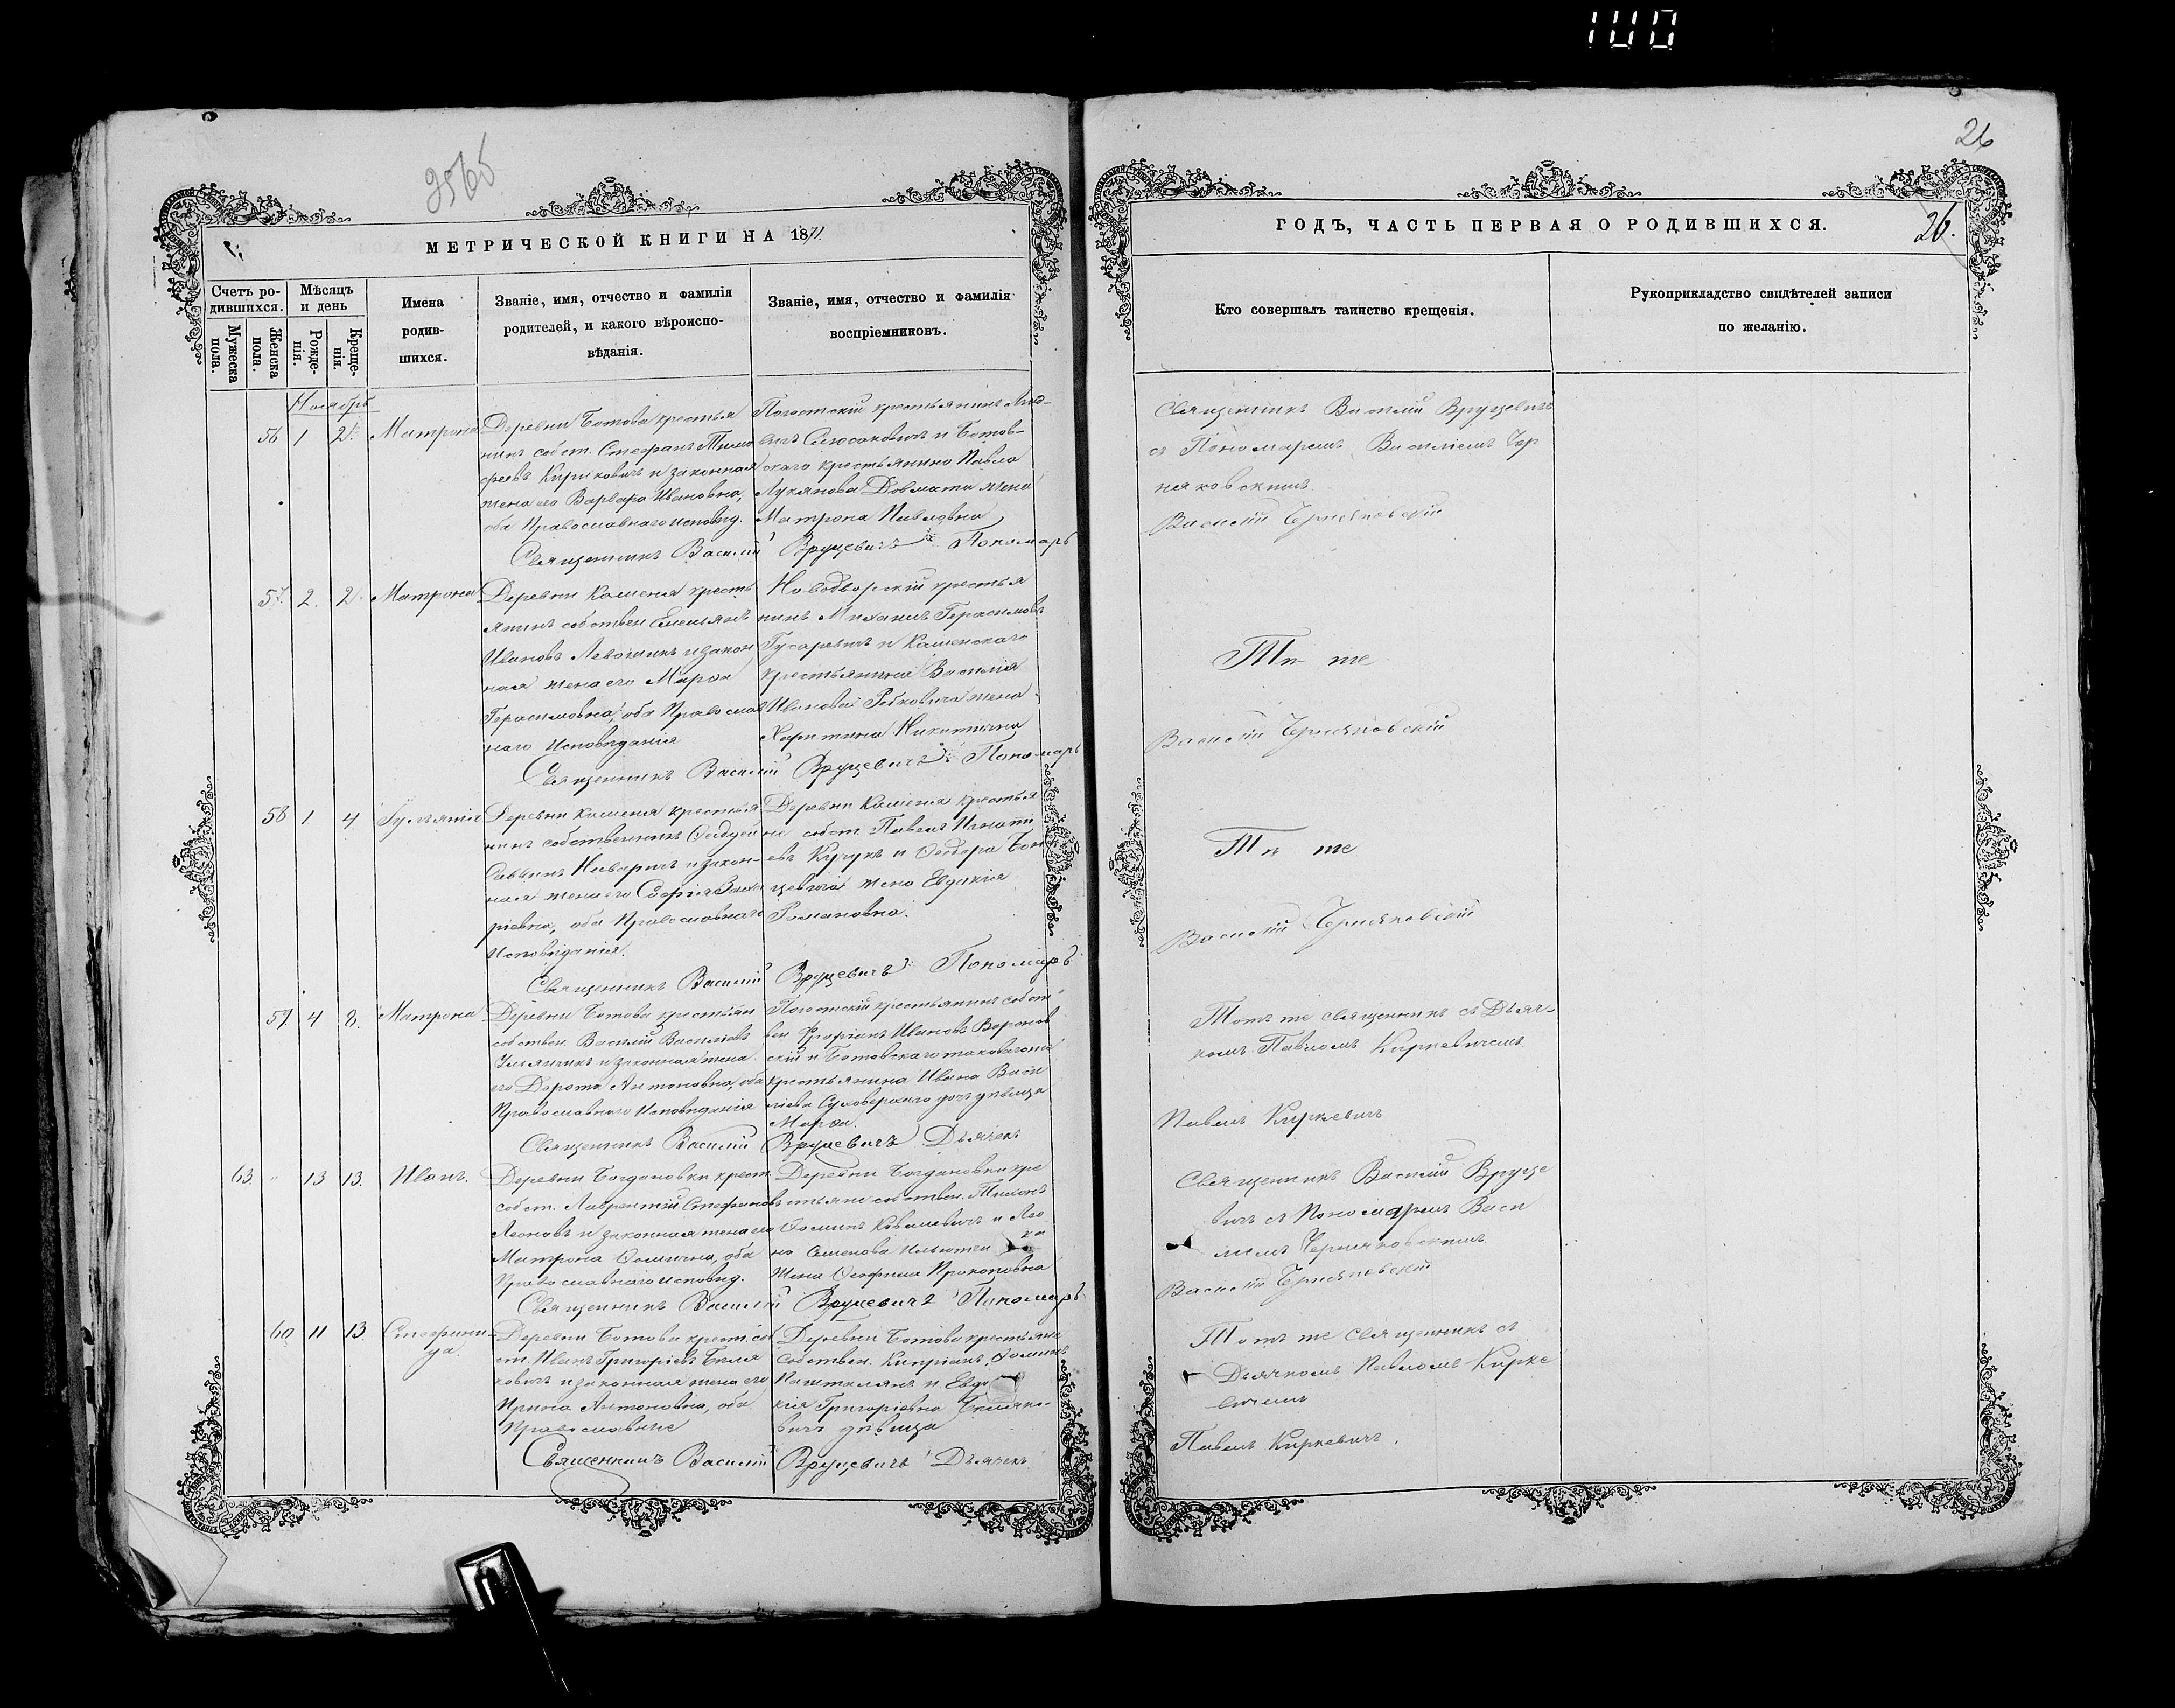 100
9565
26
МЕТРИЧЕСКОЙ КНИГИ НА 1871
Счетъ ро-
дившихся.
Мужеска
пола.
Женска
пола.
Мѣсяцъ
и день
Рожде-
нія.
Креще-
нія.
Имена
родив-
шихся.
Званіе, имя, отчество и фамилія
родителей, и какого вѣроиспо-
вѣданія.
Званіе, имя, отчество и фамилія
воспріемниковъ.
Ноябрь
56 1 2. Матрона
Деревни Ботова крестья
нинъ собст. Стефанъ Тимо
феевъ Кириковичъ и законная
жена его Варвара Ивановна,
оба Православнаго исповѣд.
Погостскій крестьянинъ
и Ботов-
скаго крестьянина Павла
Лукянова Довмата жена
Матрона Павловна
Священникъ Василій Вруцевичъ Пономарь
57. 2. 2. Матрона
Деревни Каменя кресть
янинъ собствен Емельянъ
Ивановъ и закон
ная жена его Марѳа
Герасимовна, оба Православ
наго Исповѣданія
Новодворскій крестья
нинъ Михаилъ Герасимовъ
Гусаревичъ и Каменскаго
крестьянина Василія
Иванова жена
Харитина Никитична
Священникъ Василій Вруцевичъ Пономарь
58 1 4
Деревни Каменя крестья
нинъ собственникъ
Саввинъ и закон-
ная жена его Софія
ріевна, оба Православнаго
Исповѣданія.
Деревни Каменя крестья
не собст. Павелъ Игнати
евъ Кучукъ и Ѳедора Бон
цевича жена Евдокія
Романовна.
Священникъ Василій Вруцевичъ Пономарь
59 4 8. Матрона
Деревни Ботова крестьян
собствен. Василій Васильевъ
и законная жена
его Дорота Антоновна, оба
Православнаго Исповѣданія
Погостскій крестьянинъ собст
вен Ивановъ Воронов
скій и Ботовскаго
крестьянина Ивана Васи
ліева дочь дѣвица
Марѳа.
Священникъ Василій Вруцевичъ Дьячекъ
63. " 13 13. Иванъ.
Деревни Богдановки крест.
собст. Лаврентій Стефановъ
Леоновъ и законная жена его
Матрона Ѳомична, оба
Православнаго исповѣд.
Деревни Богдановки кре
стьяне собствен. Тихонъ
Ѳоминъ Ковалевичъ и
Семенова
жена Прокоповна
Священникъ Василій Вруцевичъ Пономарь
60 11 13. Стефани-
да.
Деревни Ботова крест. соб
ст. Иванъ Григоріевъ Беля
ковичъ и законная жена его
Ирина Антоновна, оба
Православные
Деревни Ботова крестьяне
Собствен. Кипріанъ Ѳоминъ
и Евдо
кія Григоріевна Беляко-
вичъ дѣвица
Священникъ Василій Вруцевичъ Дьячекъ
26
ГОДЪ, ЧАСТЬ ПЕРВАЯ О РОДИВШИХСЯ.
Кто совершалъ таинство крещенія.
Рукоприкладство свидѣтелей записи
по желанію.
Священникъ Василій Вруцевичъ
съ Пономаремъ Василіемъ Чер
няковскимъ
Василій Черняковскій
Тѣ же
Василій Черняковскій
Тѣ же
Василій Черняковскій
Тотъ же священникъ съ Дьяч-
комъ Павломъ Киркевичемъ
Павелъ Киркевичъ
Священникъ Василій Вруце
вичъ съ Пономаремъ Васи
ліемъ Черняковскимъ
Василій Черняковскій
Тотъ же священникъ съ
Дьячкомъ Павломъ Кирке
вичемъ
Павелъ Киркевичъ.